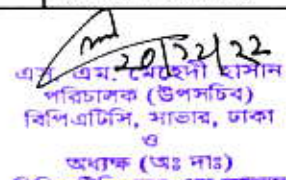 20/12/22
এস. এম. মেহেদী হাসান
পরিচালক (উপসচিব)
বিপিএটিসি, সাভার, ঢাকা
ও
অধ্যক্ষ (অঃ দাঃ)